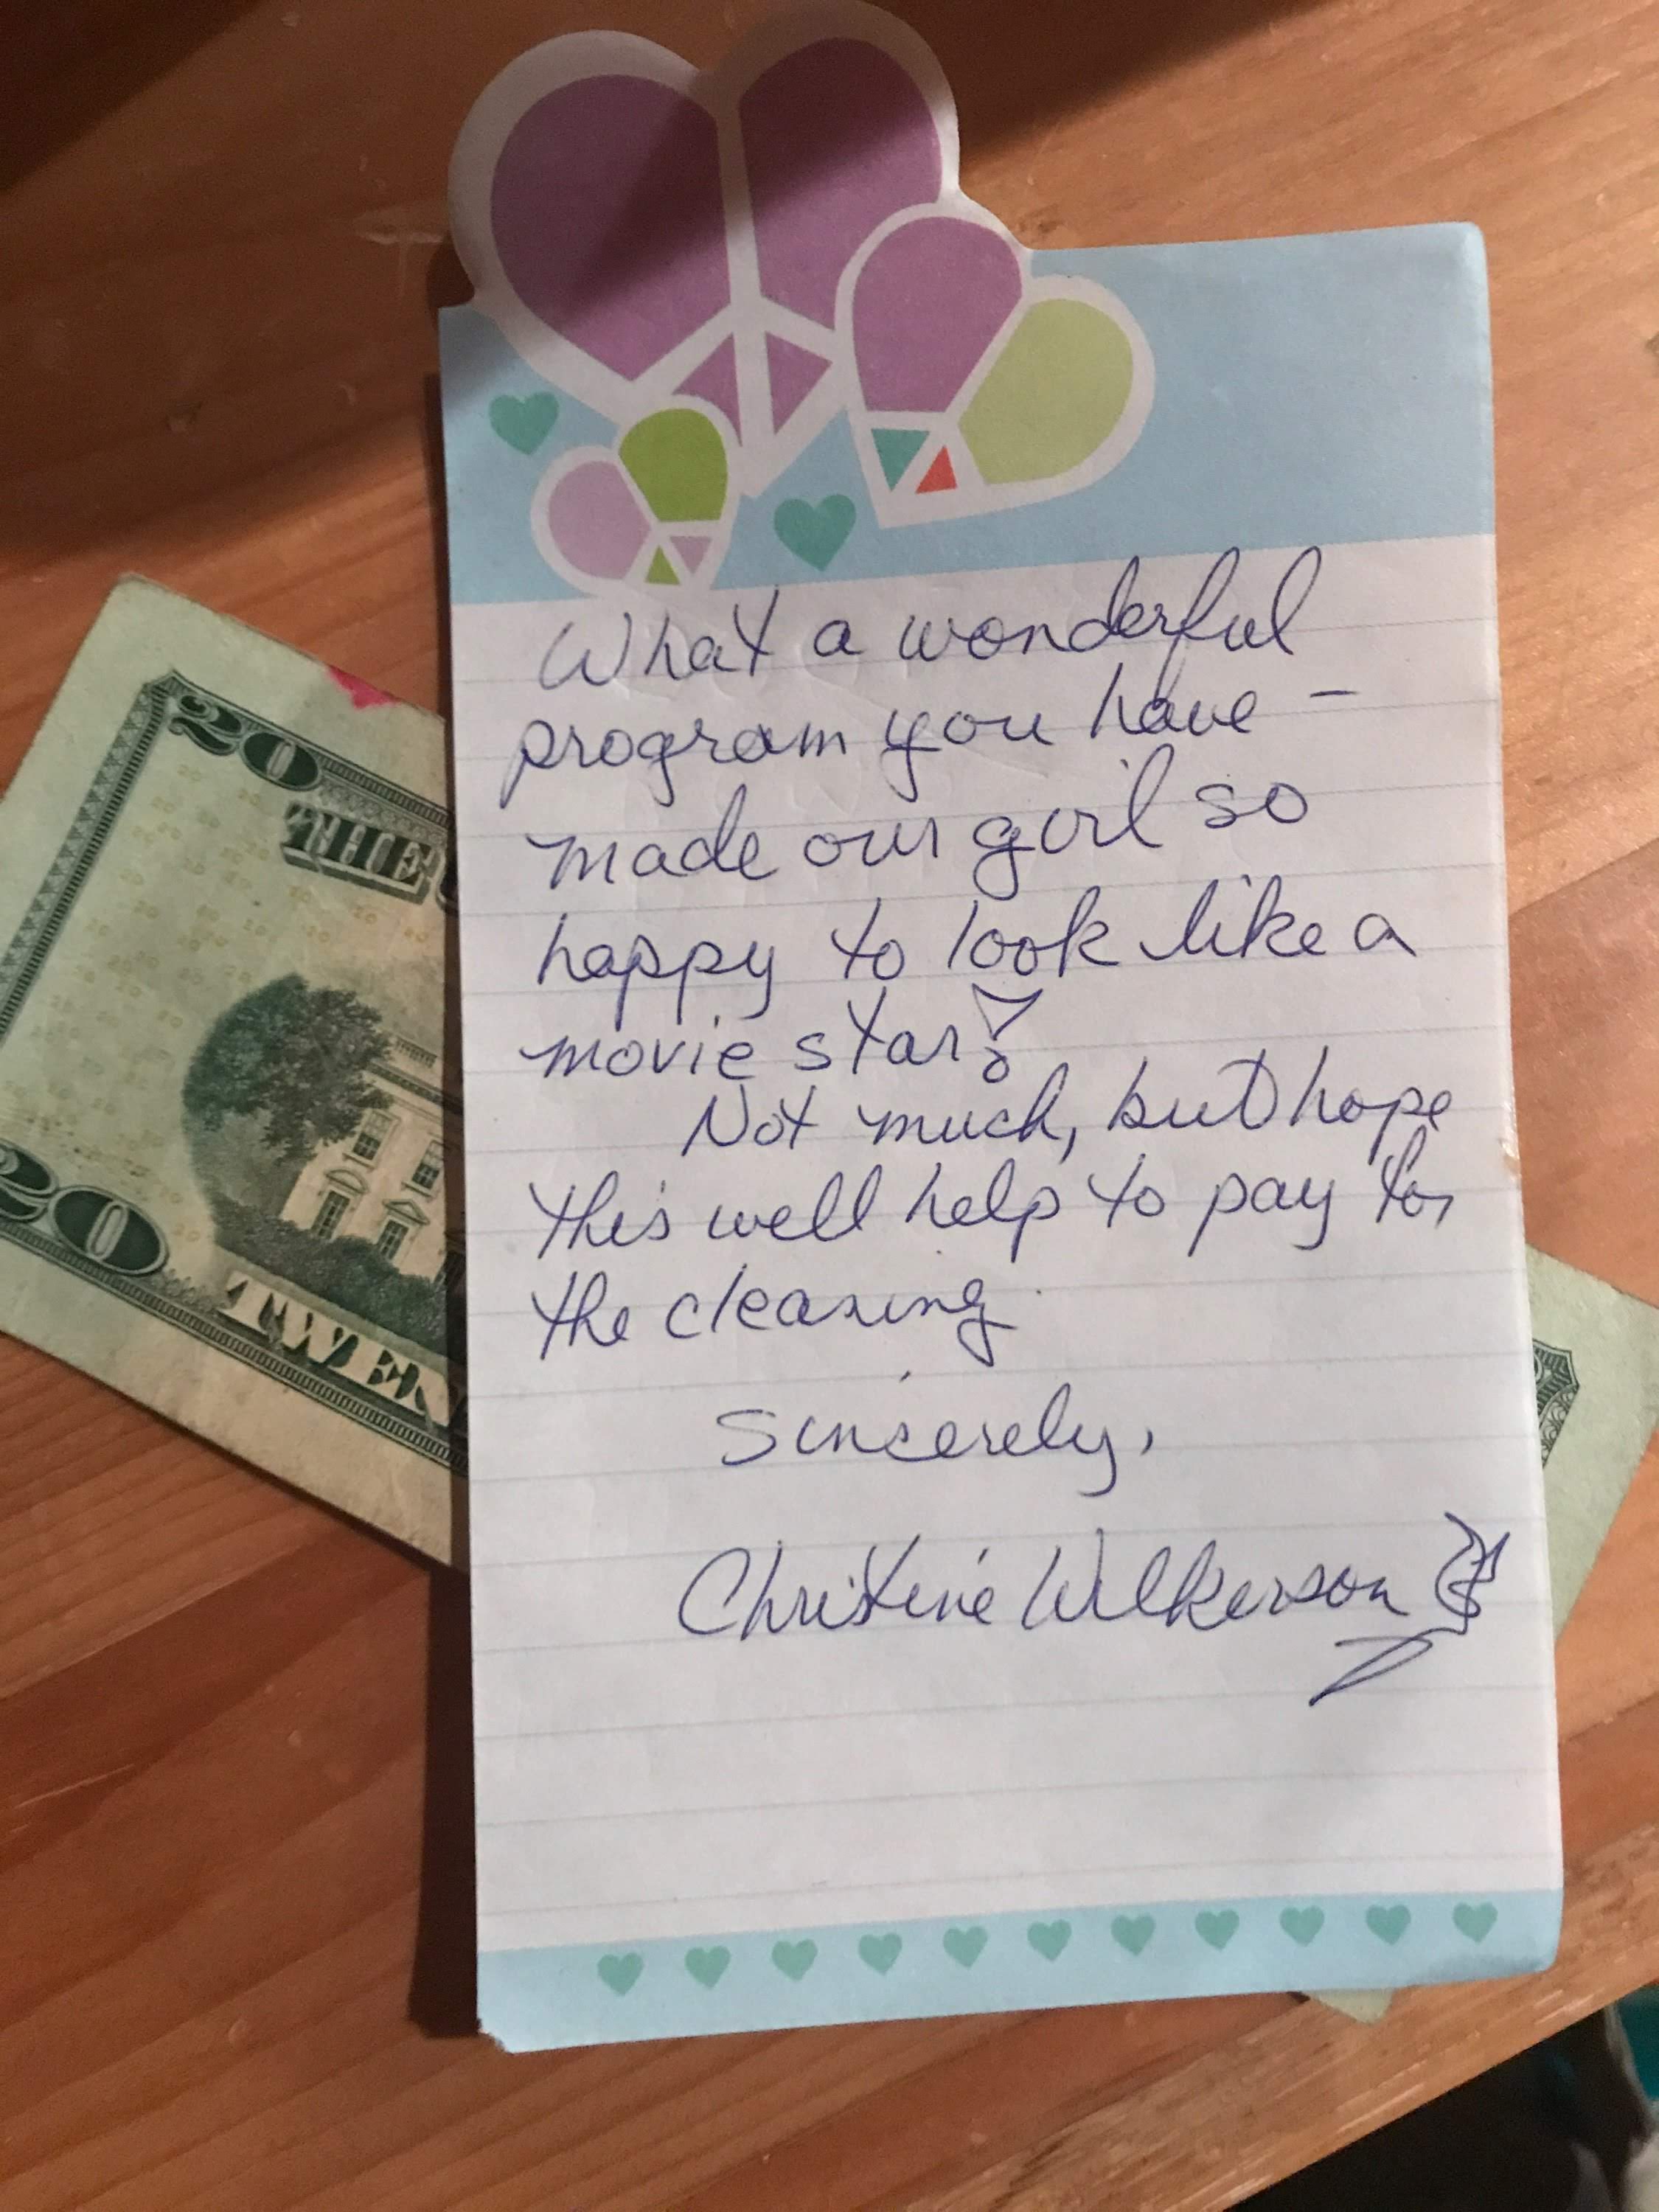 What a wonderful
program you have –
made our girl so
happy to look like a
movie star!
Not much, but hope
this well help to pay for
the cleaning.
Sincerely,
Christine Wilkerson
20
THE
20
TWEN